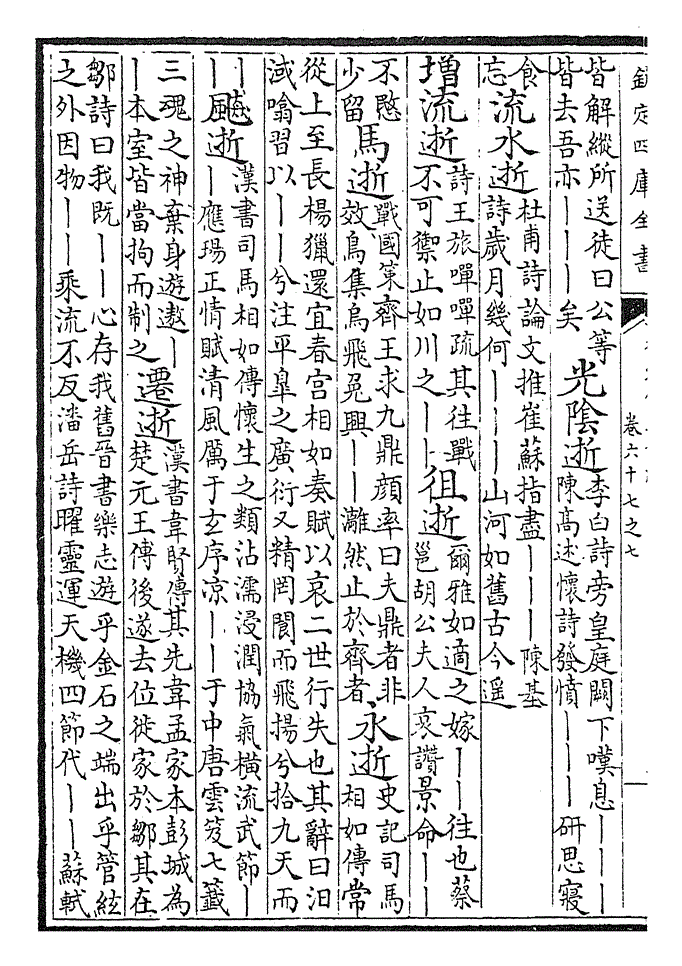 欽定四庫全書
卷六十七之七
皆解縱所送徒曰公等
皆去吾亦丨丨丨矣
光陰逝
李白詩旁皇庭闕下嘆息丨丨丨
陳高述懷詩發憤丨丨丨研思寢
食
忘
流水逝
杜甫詩論文推崔蘇指盡丨丨丨陳基
詩歲月幾何丨丨丨山河如舊古今遥
增流逝
詩王旅嘽嘽疏其往戰
不可禦止如川之丨丨
徂逝
爾雅如適之嫁丨丨往也蔡
邕胡公夫人哀讚景命丨丨
不愍
少留
馬逝
戰國策齊王求九鼎顔率曰夫鼎者非
效鳥集烏飛兔興丨丨灕然止於齊者
永逝
史記司馬
相如傳常
從上至長楊獵還宜春宮相如奏賦以哀二世行失也其辭曰汩
淢噏習以丨丨兮注平臯之廣衍又精罔閬而飛揚兮拾九天而
丨
丨
飈逝
漢書司馬相如傳懷生之類沾濡浸潤協氣橫流武節丨
丨應瑒正情賦清風厲于玄序凉丨丨于中唐雲笈七籤
三魂之神棄身遊遨丨
丨本室皆當拘而制之
遷逝
漢書韋賢傳其先韋孟家本彭城為
楚元王傳後遂去位徙家於鄒其在
鄒詩曰我既丨丨心存我舊晉書樂志遊乎金石之端出乎管絃
之外因物丨丨乘流不反潘岳詩曜靈運天機四節代丨丨蘇軾